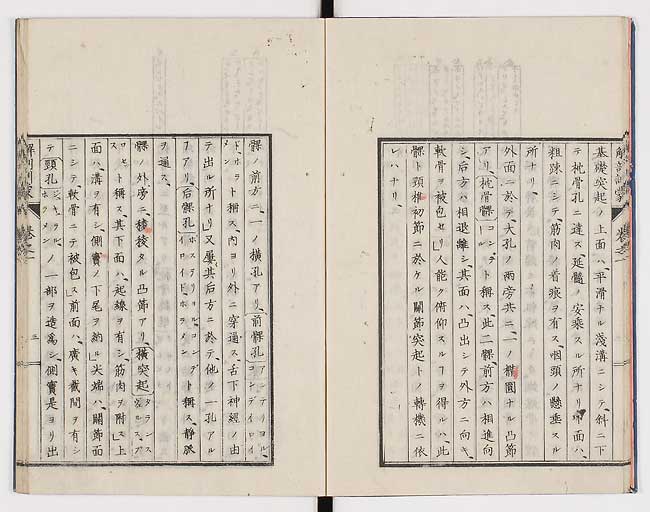 基礎突起ノ上面ハ、平滑ナル淺溝ニシテ、斜ニ下
テ枕骨孔ニ達ス、延髓ノ安乘スル所ナリ、面ハ、
粗踈ニシテ、筋肉ノ着痕ヲ有ス、咽頭ノ懸垂スル
所ナリ、
外面ニ於テ大孔ノ兩旁共ニ、一ノ橢圓ナル凸節
アリ、枕骨髁コンダト稱ス、此二髁、前方ハ相進向
シ、后方ハ相退離シ、其面ハ、凸出シテ外方ニ向キ、
軟骨ヲ被包セリ、人能ク俯仰スルヿヲ得ルハ、此
髁ト頸椎初節ニ於ケル關節突起トノ轉機ニ依
レハナリ、
髁ノ前方ニ、一ノ橫孔アリ、前髁孔アンテリヨル、コンデイロイ
ドホラト稱ス、內ヨリ外ニ穿通ス、舌下神經ノ由
テ出ル所ナリ、又屢其后方ニ於テ、他ノ一孔アル
ヿアリ、后髁孔ト稱ス、靜脈
ヲ通ス、
髁ノ外旁ニ稜稜タル凸節アリ、橫突起タランス
ロセト稱ス、其下面ハ、起線ヲ有シ、筋肉ヲ附ス、上
面ハ、溝ヲ有シ、側竇ノ下尾ヲ納ル、尖端ハ、關節面
ニシテ軟骨ニテ被包ス、前面ハ、廣キ截間ヲ有シ
テ頸孔ジユギュラル、ホラメンノ一部ヲ造爲シ、側竇是ヨリ出
解剖訓蒙 卷之一